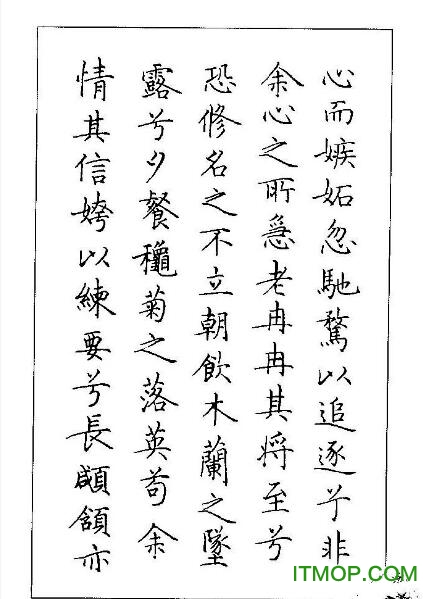 心而嫉妬忽馳騖以追逐兮非
余心之所急老冉冉其将至兮
恐修名之不立朝飲木蘭之墜
露兮夕餐龝菊之落英苟余
情其信姱以練要兮長顑頷亦
ITMOP.com